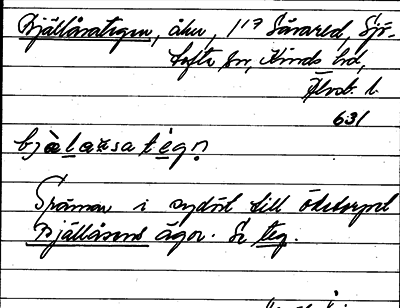 Bjällåsategen, åker, 1/17 Såvared, Sjö-
tofta sn, Kinds hd,
Älvsb. l.
631
bjä̀laʀsatégɔ
Gränsar i sydöst till ödetorpet
Bjällåsens ägor. Se teg.